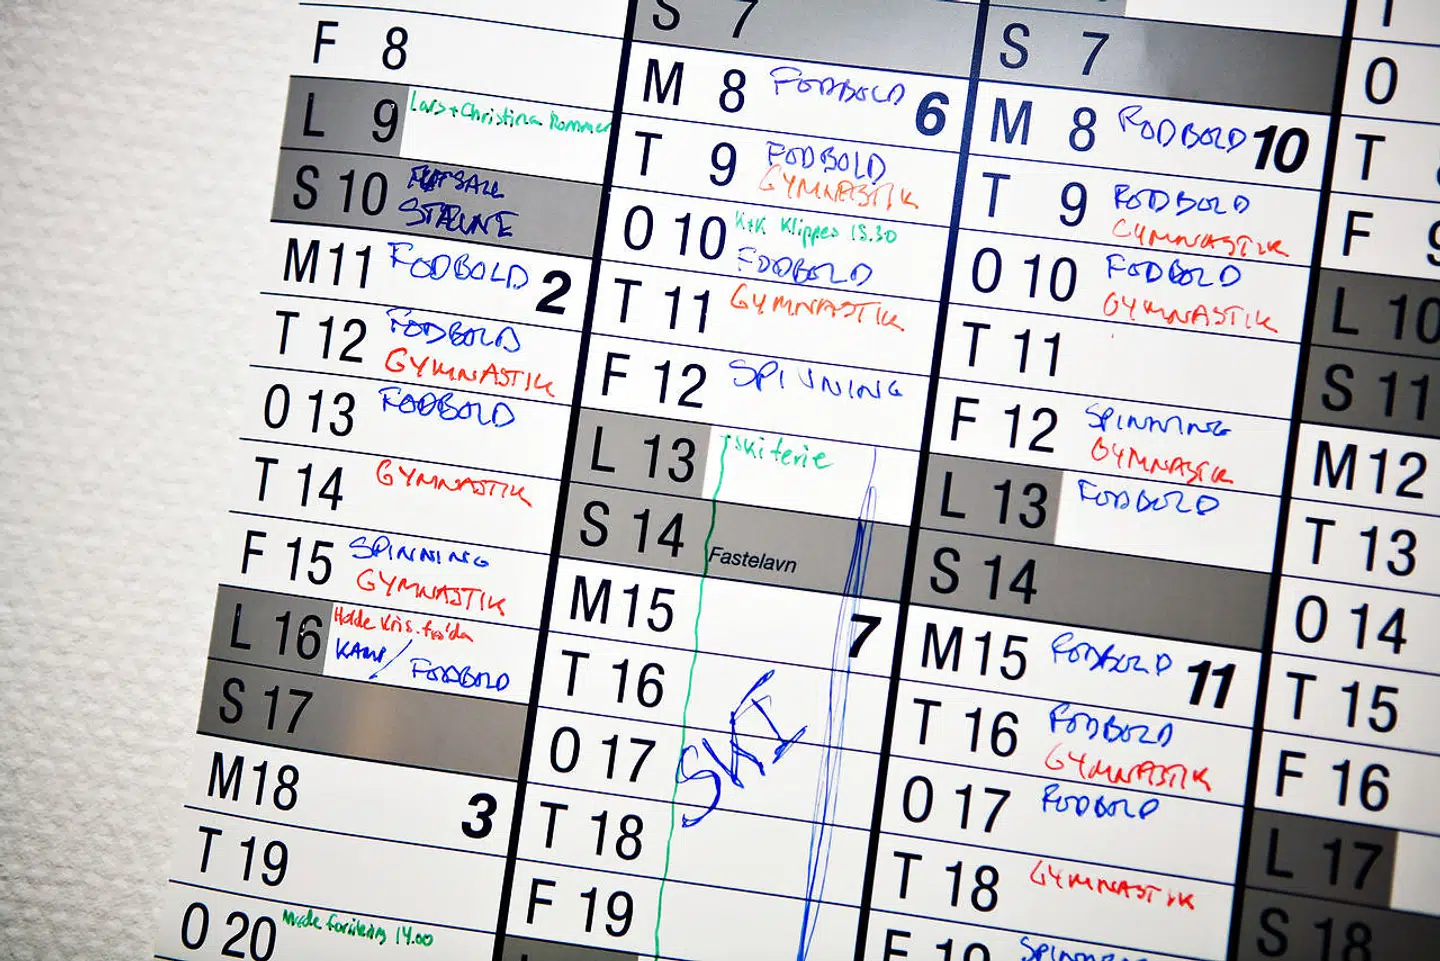 F 8
L 9 Lars + Christina kommer
S 10 FUTSALL
STÆVNE
M 11 FODBOLD 2
T 12 FODBOLD
GYMNASTIK
O 13 FODBOLD
T 14 GYMNASTIK
F 15 SPINNING
GYMNASTIK
L 16
KAMP / FODBOLD
S 17
M 18 3
T 19
O 20 14.00
S 7
M 8 FODBOLD 6
T 9 FODBOLD
GYMNASTIK
O 10 K+K Klippes 15.30
FODBOLD
T 11 GYMNASTIK
F 12 SPINNING
L 13 skiferie
S 14 Fastelavn
M 15 7
T 16
O 17 SKI
T 18
F 19
L
S 7
M 8 FODBOLD 10
T 9 FODBOLD
GYMNASTIK
O 10 FODBOLD
GYMNASTIK
T 11
F 12 SPINNING
GYMNASTIK
L 13 FODBOLD
S 14
M 15 FODBOLD 11
T 16 FODBOLD
GYMNASTIK
O 17 FODBOLD
T 18 GYMNASTIK
F 19 SPINNING
O
T
F 9
L 10
S 11
M 12
T 13
O 14
T 15
F 16
L 17
S 18